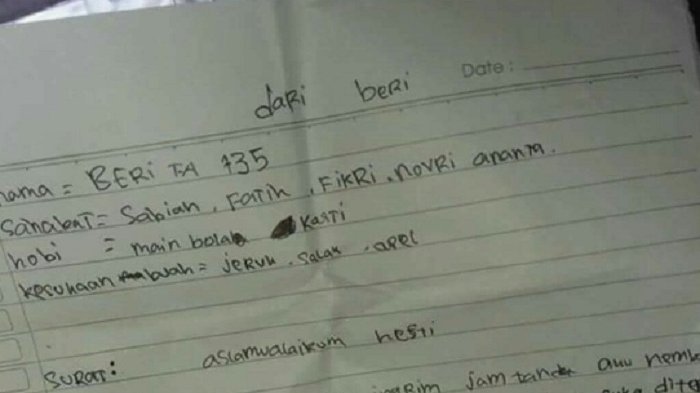 Date:
dari beri
nama = BERi TA 135
Sahabat = Sabiah, Fatih, Fikri, Novri ananta.
hobi = main bola Kasti
kesukaan buah = jeruk, salak, apel
SURAT: aslamualaikum hesti
ngarim jam tanda auu
dite